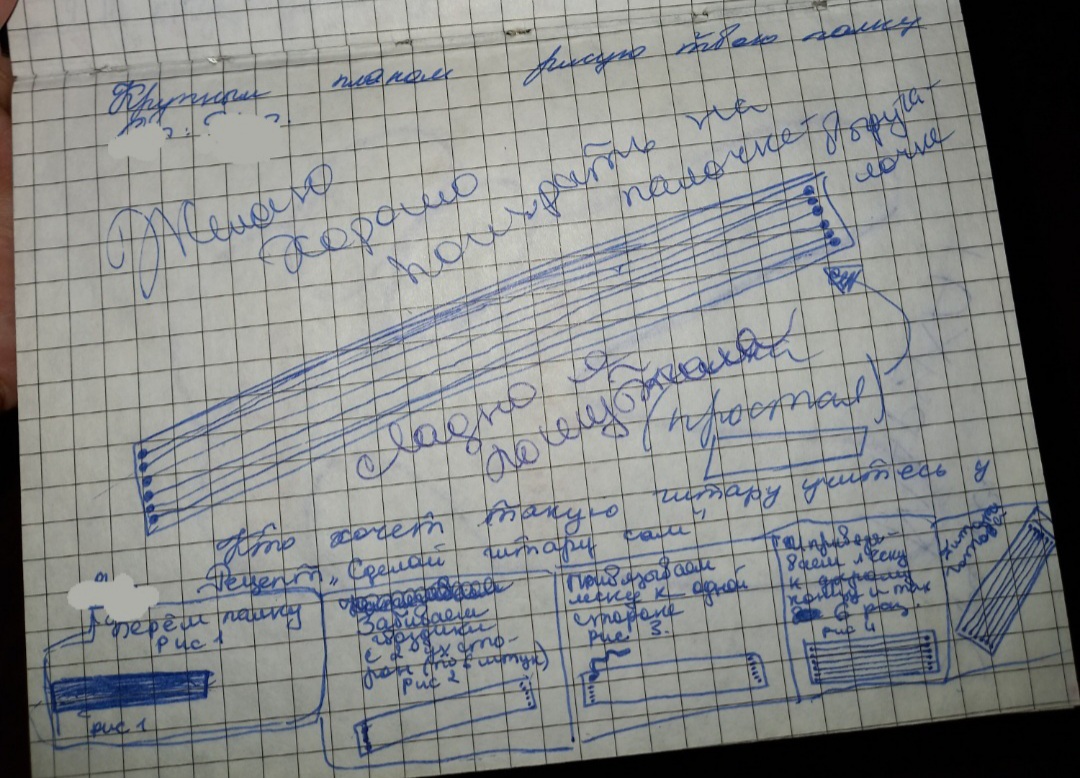 Крупным планом рисую твою палку
Желаю
хорошо
поиграть на
палочке-выруча-
лочке
Ладно я
пошутила
(простая)
Кто хочет такую гитару учитесь у
Рецепт „Сделай гитару сам"
Берём палку
Рис 1
рис 1
Забиваем
гвоздики
с двух сто-
рон (по 6 штук)
Рис 2
Привязываем
леску к одной
стороне
рис. 3.
леску
к другому
концу и так
6 раз.
рис 4
Гитара
готова